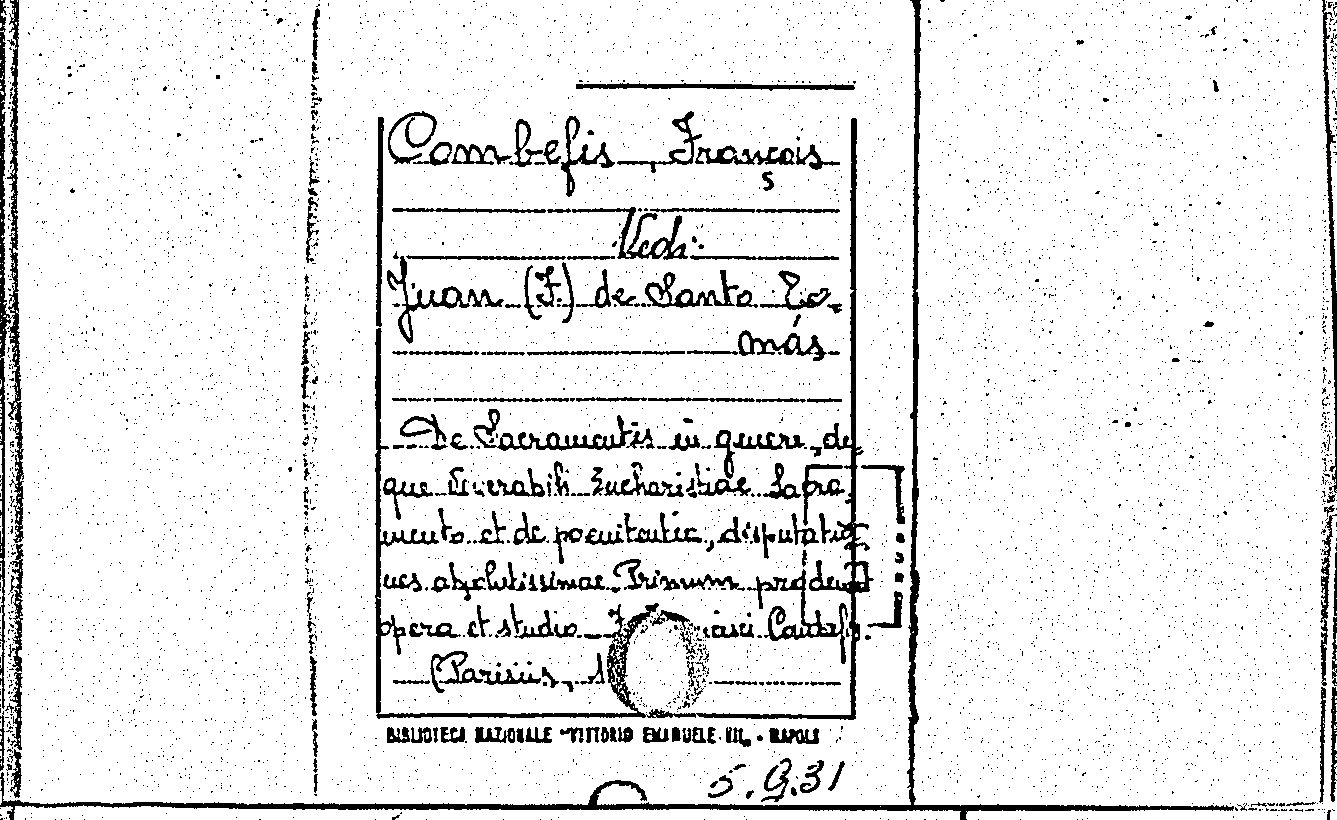 Combefis, François
Vedi:
Juan (F.) de Santo To-
más
De Sacramentis in genere, de-
que Venerabili Eucharistiae Sacra-
mento et de poenitentia, disputatio-
nes absolutissimae. Primum prodeunt
opera et studio Combefis.
(Parisiis,
BIBLIOTECA NAZIONALE "VITTORIO EMANUELE III" - NAPOLI
5.G.31